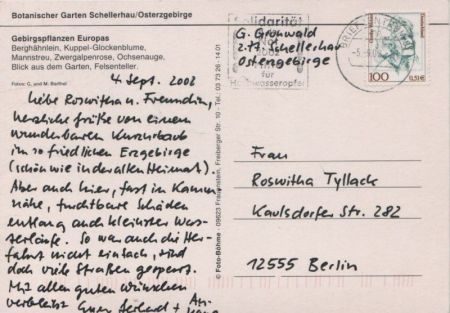 Botanischer Garten Schellerhau/Osterzgebirge
Gebirgspflanzen Europas
Berghähnlein, Kuppel-Glockenblume,
Mannstreu, Zwergalpenrose, Ochsenauge,
Blick aus dem Garten, Felsenteller.
Fotos: G. und M. Barthel
4. Sept. 2002
Liebe Roswitha u. Freundin,
herzliche Grüße von einem
wunderbaren Kurzurlaub
im so friedlichen Erzgebirge
(schön wie in der alten Heimat).
Aber auch hier, fast in Kamm-
nähe, furchtbare Schäden
entlang auch kleinster Was-
serläufe. So war auch die Her-
fahrt nicht einfach, sind
doch viele Straßen gesperrt.
Mit allen guten Wünschen
verbleibt Euer Gerhard +
© Foto-Böhme · 09623 Frauenstein, Freiberger Str. 10 · Tel. 03 73 26 - 14 01
Solidarität
für
Hochwasseropfer
G. Grünwald
z.Zt. Schellerhau
Osterzgebirge
BRIEFZENTRUM
100
0,51€
Frau
Roswitha Tyllack
Kaulsdorfer Str. 282
12555 Berlin